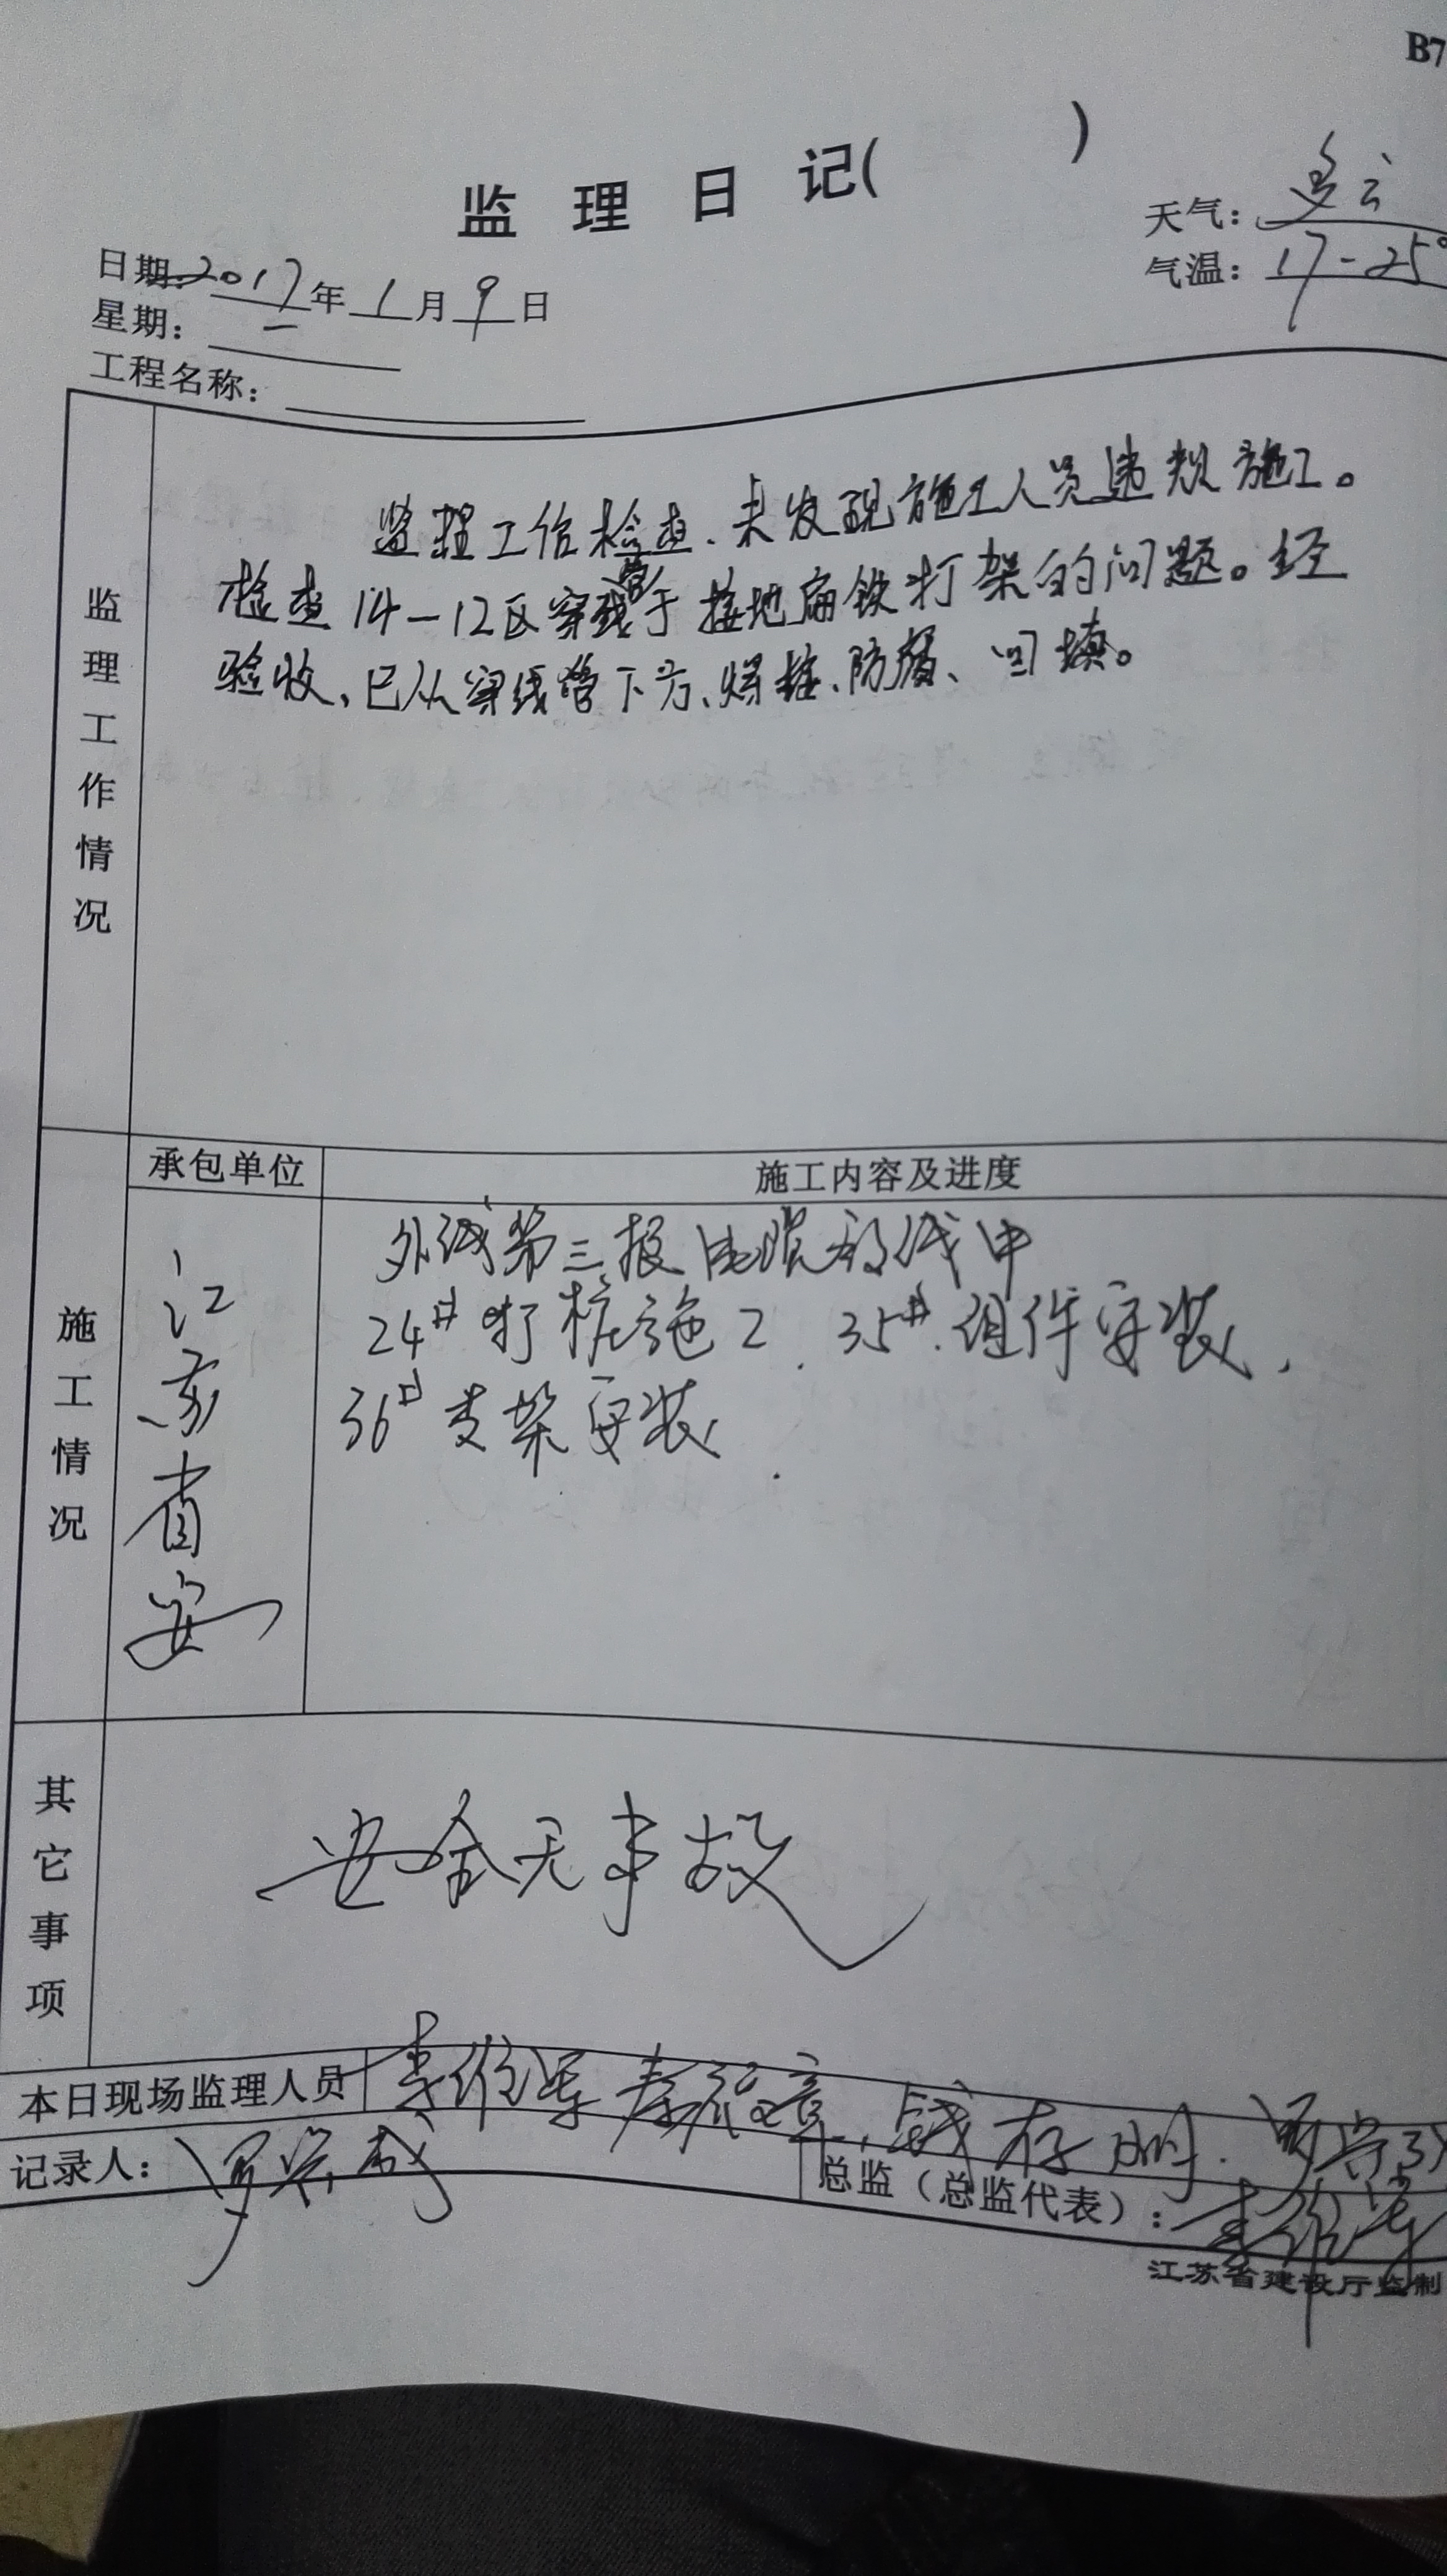 B7
监理日记( )
天气：多云
日期：2017年1月9日
气温：17-25°
星期：一
工程名称：
监理工作情况
监理工作检查.未发现施工人员违规施工。
检查14-12区穿线管于接地扁铁打架的问题。经
验收、已从穿线管下方、焊接、防腐、回填。
承包单位
施工内容及进度
施工情况
江苏省安
外线第三 电缆 线中
24#打桩施工.35#.组件安装.
36#支架安装.
其它事项
安全无事故
本日现场监理人员
存明.
记录人：
总监（总监代表）：
江苏省建设厅监制